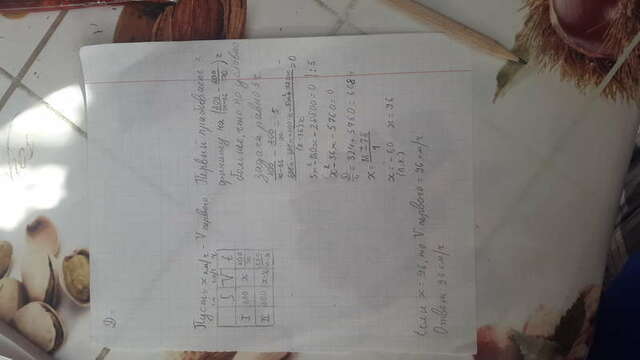 D-
Пусть x км/ч - V первого
S V t
км км/ч ч
I 800 x 800/x
II 800 x-36 800/x-36
Первый прибывает к
финишу на (800/x-36 - 800/x) ч
что по условию
задачи равно 5 ч
800/x-36 - 800/x = 5
(x-36)x = 0
5x²-180x-28800=0 |:5
x²-36x-5760=0
D/4=324+5760=6084
x=18±78/1
x=-60 x=96
(п.к.)
Если x=96, то V первого = 96 км/ч
Ответ: 96 км/ч